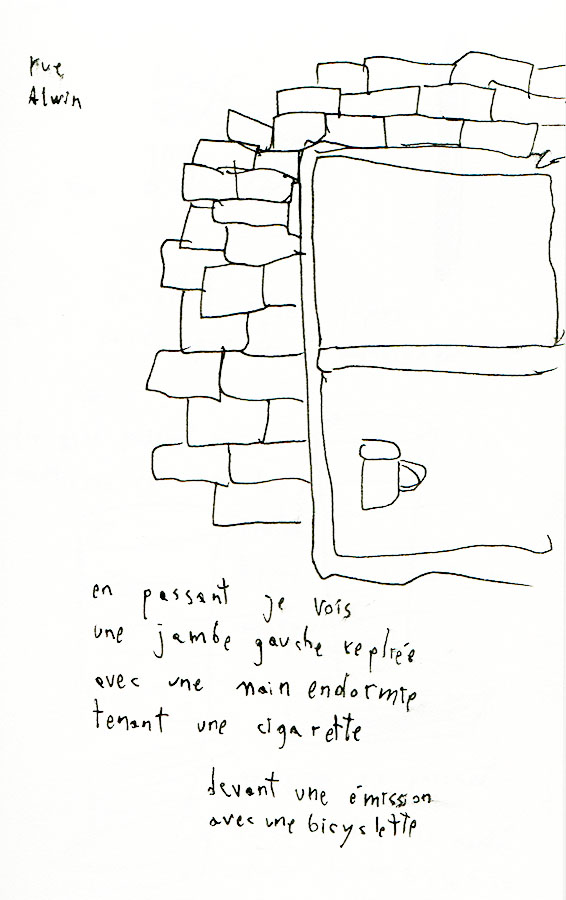 rue
Alwin
en passant je vois
une jambe gauche repliée
avec une main endormie
tenant une cigarette
devant une émission
avec une bicyclette